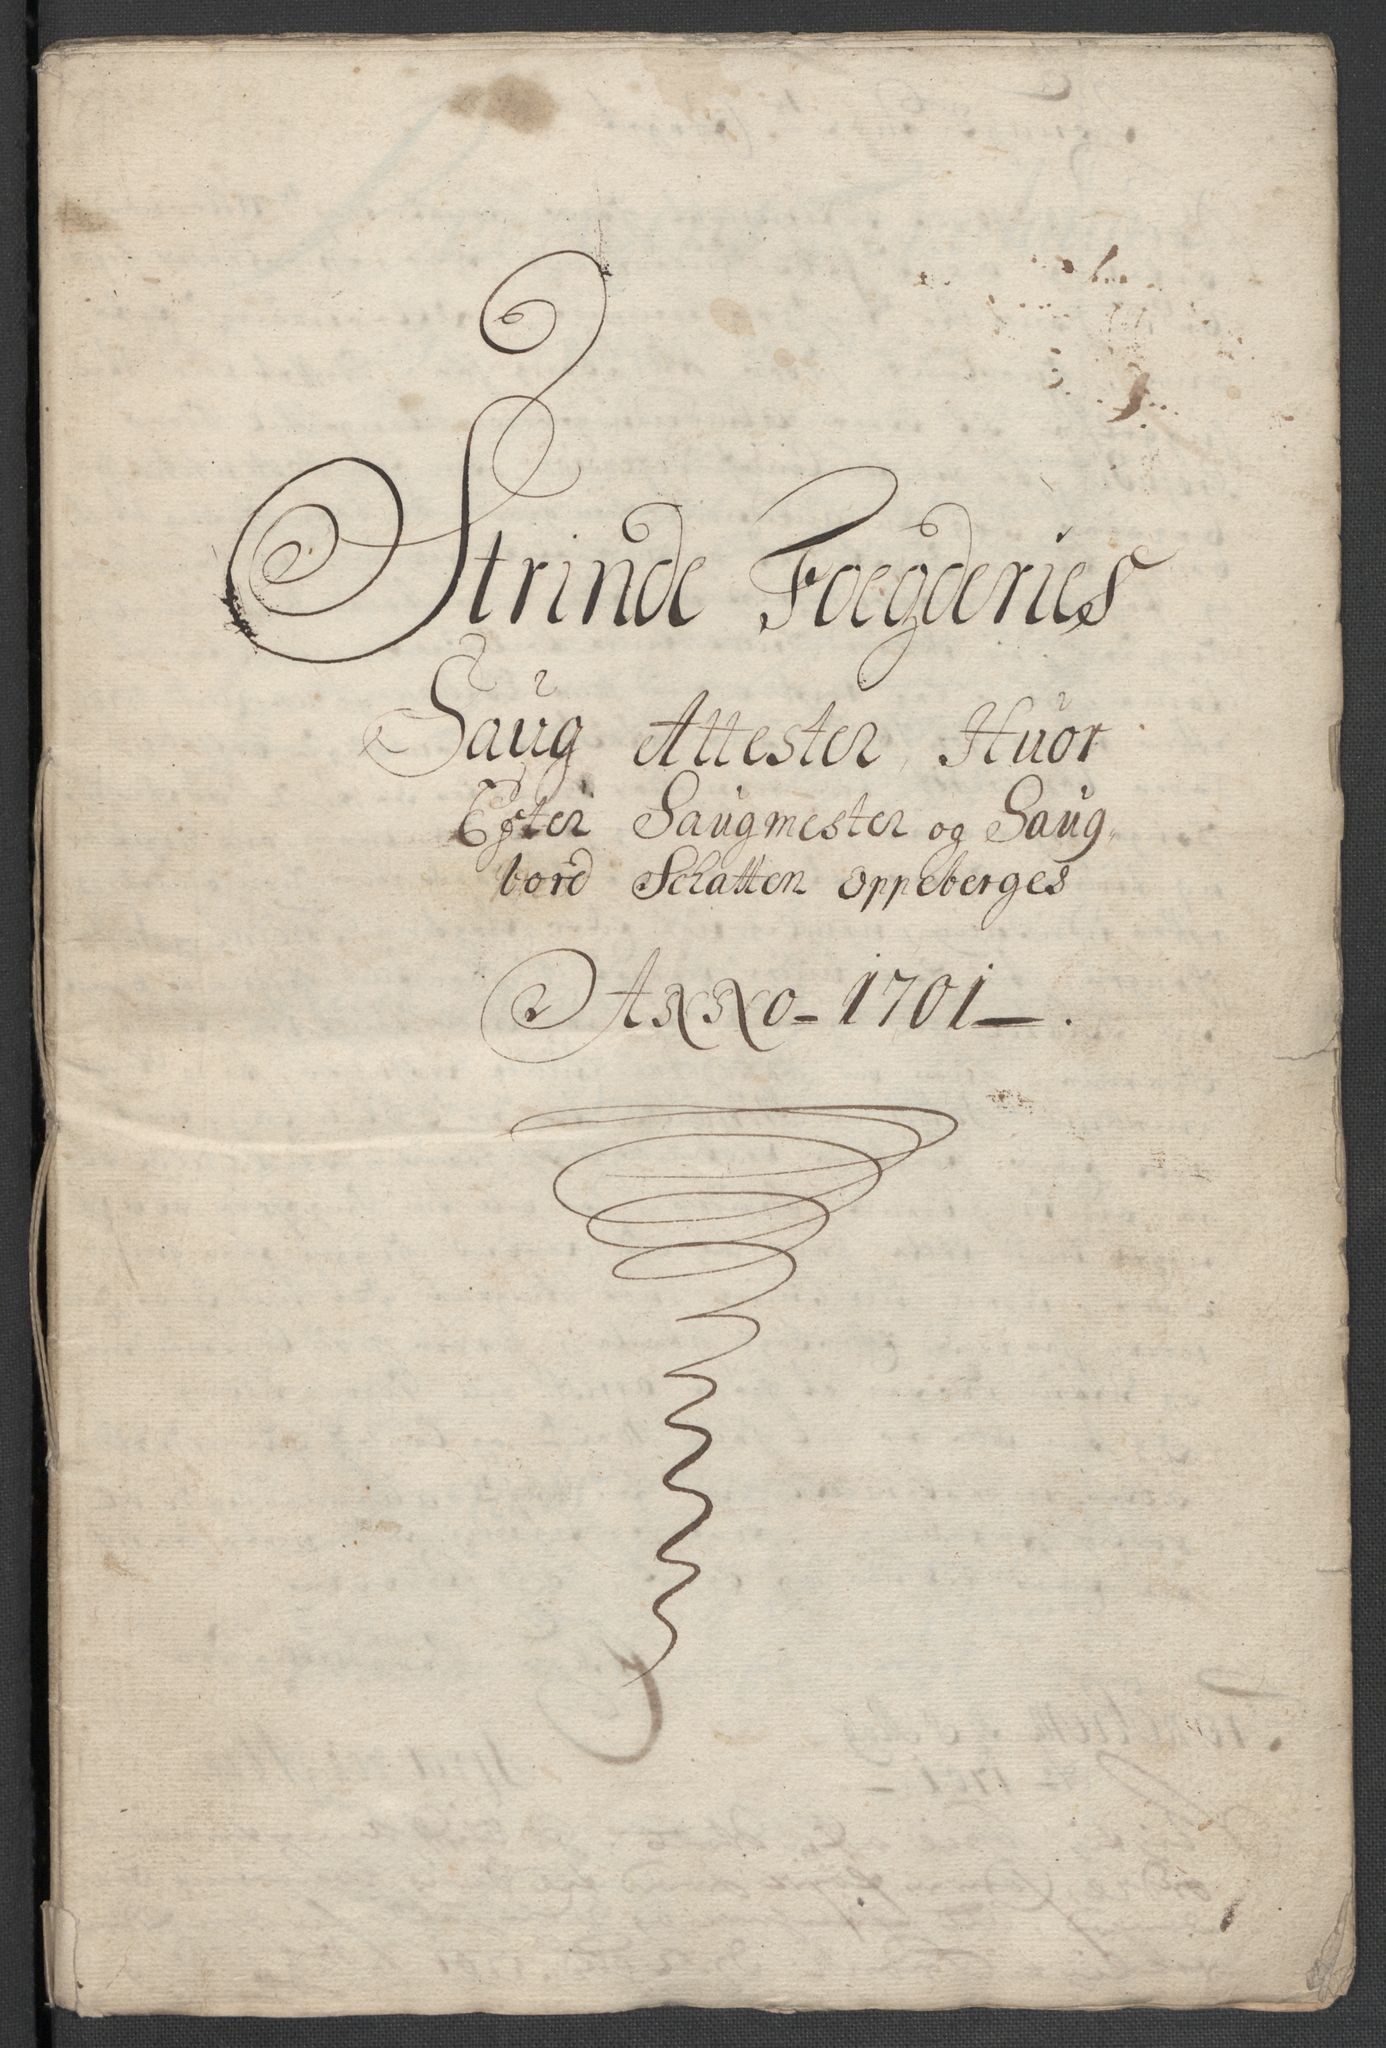 Strinde Foegderies
Saug Attester, Huor
Efter Saugmester og Saug-
bord Schatten oppeberges
Anno - 1701 - .